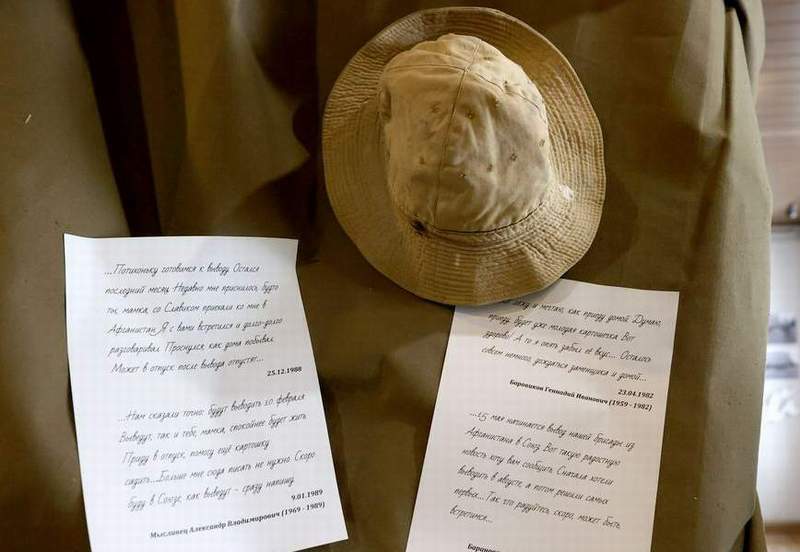 ...Потихоньку готовимся к выводу. Остался
последний месяц. Недавно мне приснилось, будто
ты, мамка, со Славиком приехали ко мне в
Афганистан. Я с вами встретился и долго-долго
разговаривал. Проснулся, как дома побывал.
Может в отпуск после вывода отпустят...
25.12.1988
...Нам сказали точно: будут выводить 10 февраля
Выведут, так и тебе, мамка, спокойнее будет жить
Приду в отпуск, помогу ещё картошку
садить...Больше мне сюда писать не нужно. Скоро
буду в Союзе, как выведут - сразу напишу.
9.01.1989
Мысливец Александр Владимирович (1969 - 1989)
и мечтаю, как приду домой. Думаю,
приду, будет уже молодая картошечка. Вот
здорово! А то я опять забыл её вкус... Осталось
совсем немного, дождаться заменщика и домой...
23.04.1982
Боровиков Геннадий Иванович (1959 - 1982)
...15 мая начинается вывод нашей бригады из
Афганистана в Союз. Вот такую радостную
новость хочу вам сообщить. Сначала хотели
выводить в августе, а потом решили самых
первых... Так что радуйтесь, скоро, может быть,
встретимся...